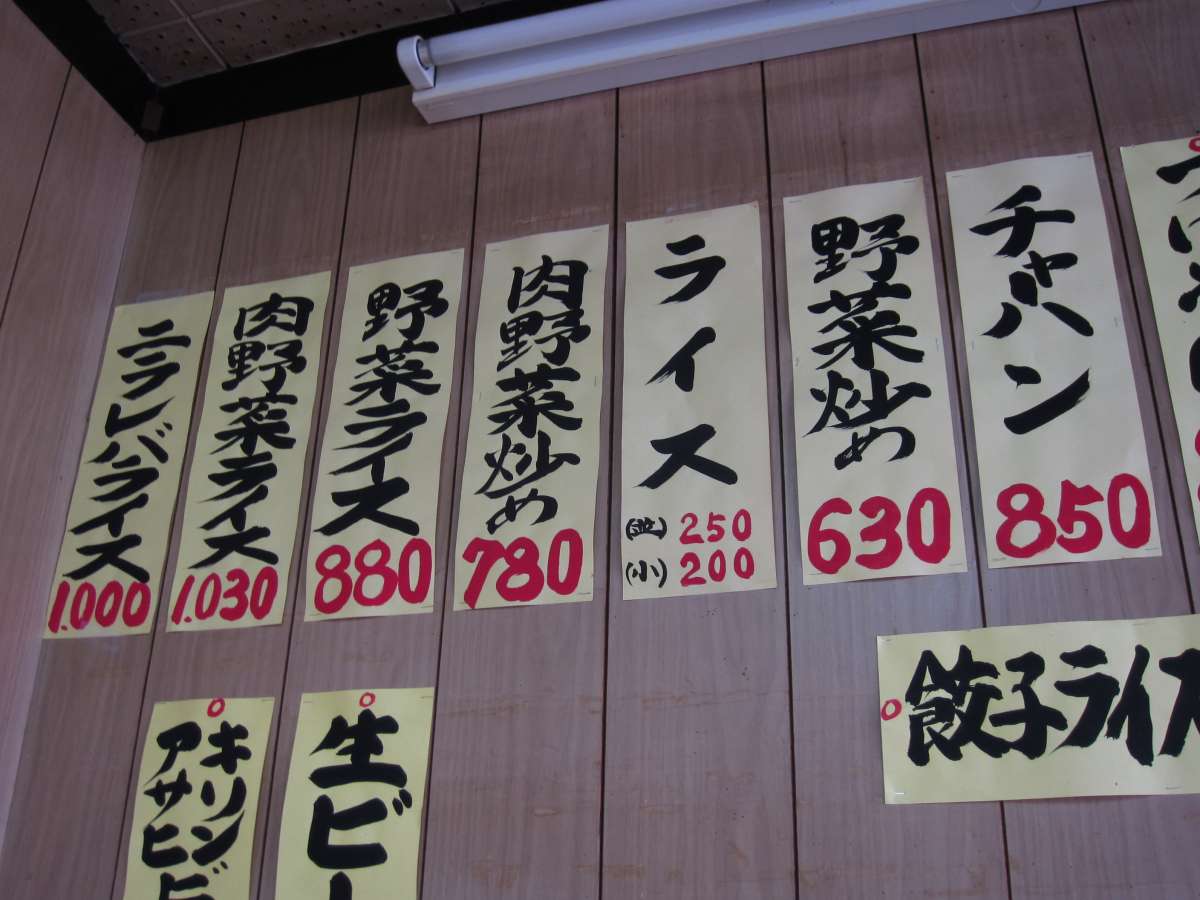 チャーハン
850
野菜炒め
630
ライス
(並) 250
(小) 200
肉野菜炒め
780
野菜ライス
880
肉野菜ライス
1.030
ニラレバライス
1.000
餃子ライス
生ビー
キリンビ
アサヒビ